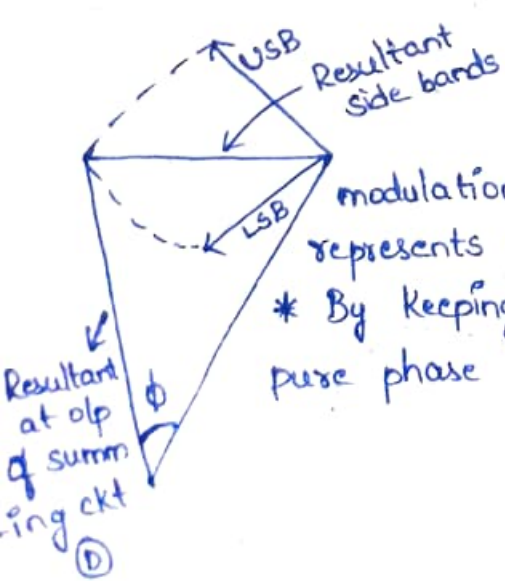 USB
Resultant
side bands
LSB
modulation
represents
* By Keeping
pure phase
ϕ
Resultant
at o/p
of summ
-ing ckt
D